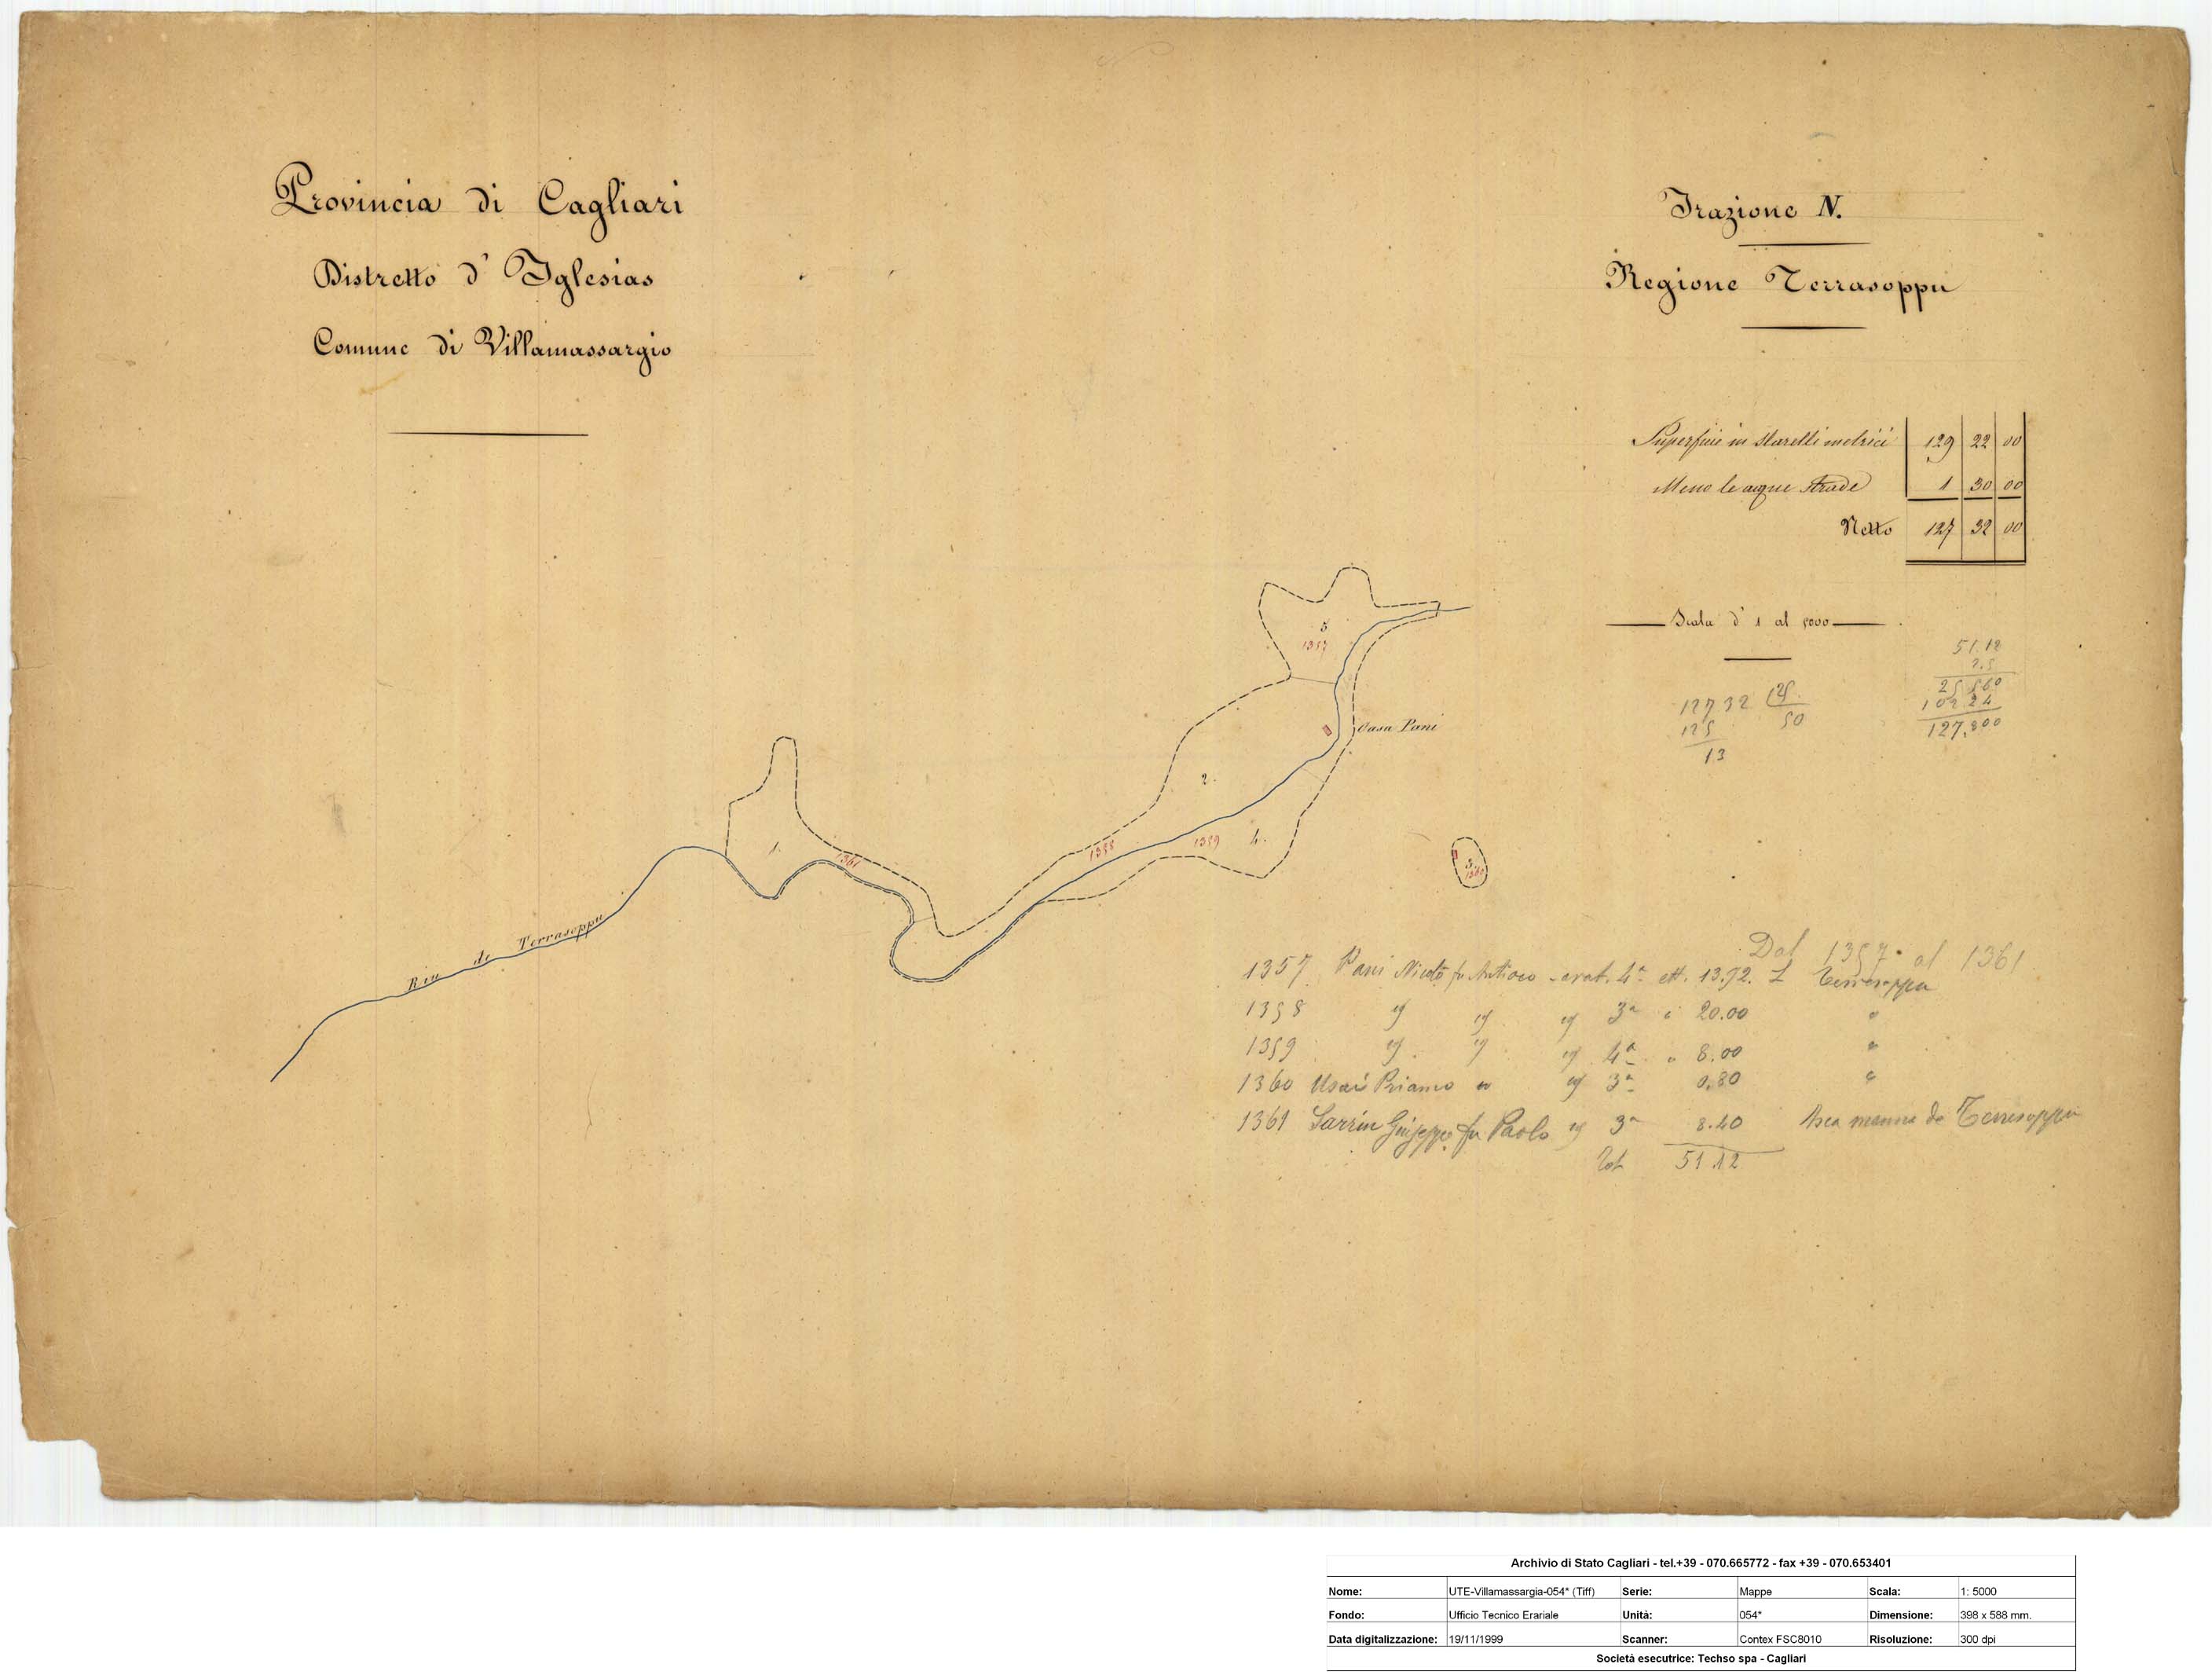 Provincia di Cagliari
Distretto d' Iglesias
Comune di Villamassargio
Frazione N.
Regione Terrasoppu
Superficie in starelli metrici 129 22 00
Meno le acque strade 1 30 00
Netto 127 32 00
Scala d' 1 al 5000
51.12
2.5
25560
10224
127,800
12732 125
50
125
13
5
1357
Casa Pani
2.
1358
1359
4.
1.
1361
3
1360
Riu de Terrasoppu
Dal 1357 al 1361
1357 Pani Nicolò fu Antioco - arat. 4ª ett. 13.92. Terresoppu
1358 " " " 3ª " 20.00 "
1359 " " " 4ª " 8.00 "
1360 Usai Priamo " " 3ª 0,80 "
1361 Sarrin Giuseppe fu Paolo " 3ª 8.40 manna de Terresoppu
Tot 51.12
Archivio di Stato Cagliari - tel.+39 - 070.665772 - fax +39 - 070.653401
Nome: UTE-Villamassargia-054* (Tiff) Serie: Mappe Scala: 1: 5000
Fondo: Ufficio Tecnico Erariale Unità: 054* Dimensione: 398 x 588 mm.
Data digitalizzazione: 19/11/1999 Scanner: Contex FSC8010 Risoluzione: 300 dpi
Società esecutrice: Techso spa - Cagliari